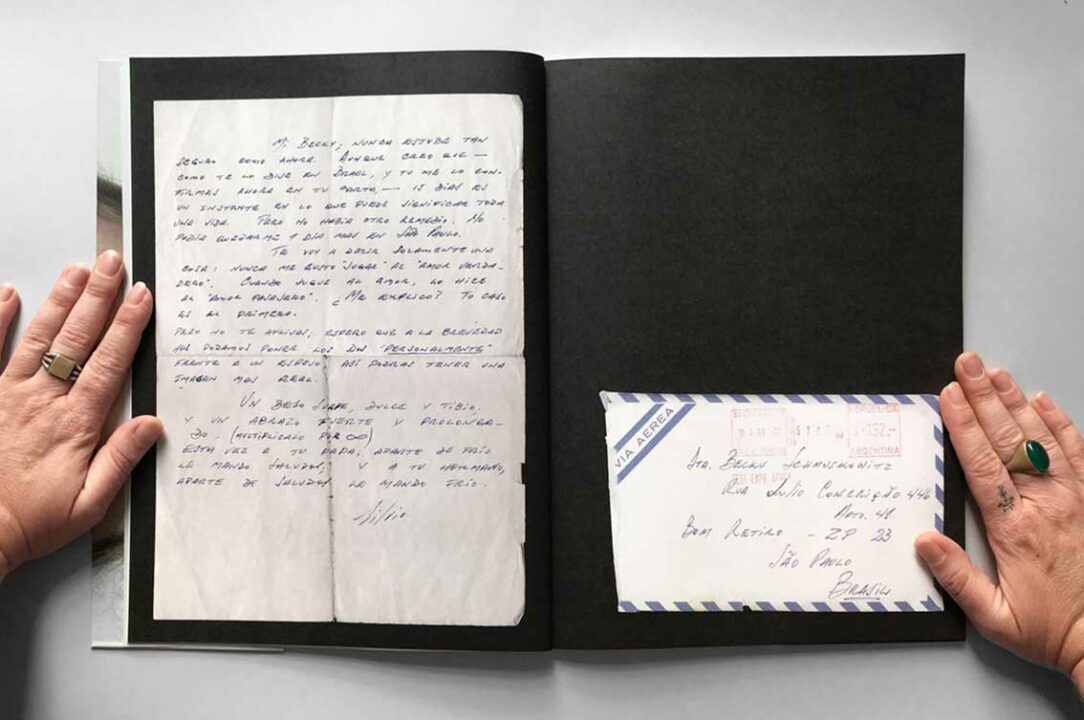 Mi Becky; nunca estube tan
segura como ahora. Aunque creo que —
como te lo dise en Israel, y tu me lo con-
firmas ahora en tu carta, — 15 dias es
un instante en lo que puede significar toda
una vida. Pero no habia otro remedio. No
podia quedarme 1 dia mas en São Paulo.
Te voy a decir solamente una
cosa: nunca me gusto "jugar" al "amor verda-
dero". Cuando jugue al amor, lo hice
al "amor pasajero". ¿Me explico? Tu caso
es el primero.
Pero no te aflijas; espero que a la brevedad
nos podamos poner los dos "personalmente"
frente a un espejo. Asi podras tener una
imagen mas real.
Un beso suave, dulce y tibio,
y un abrazo fuerte y prolonga-
do. (multiplicalo por ∞)
Esta vez a tu papa; aparte de frio
le mando saludos, y a tu hermano,
aparte de saludos, le mando frio.
Silvio
VIA AEREA
REPUBLICA
132.-
ARGENTINA
Sta. Becky Schmuskowitz
Rua Julio Conceição 446
Apto. 41
Bom Retiro - ZP 23
São Paulo
Brasil